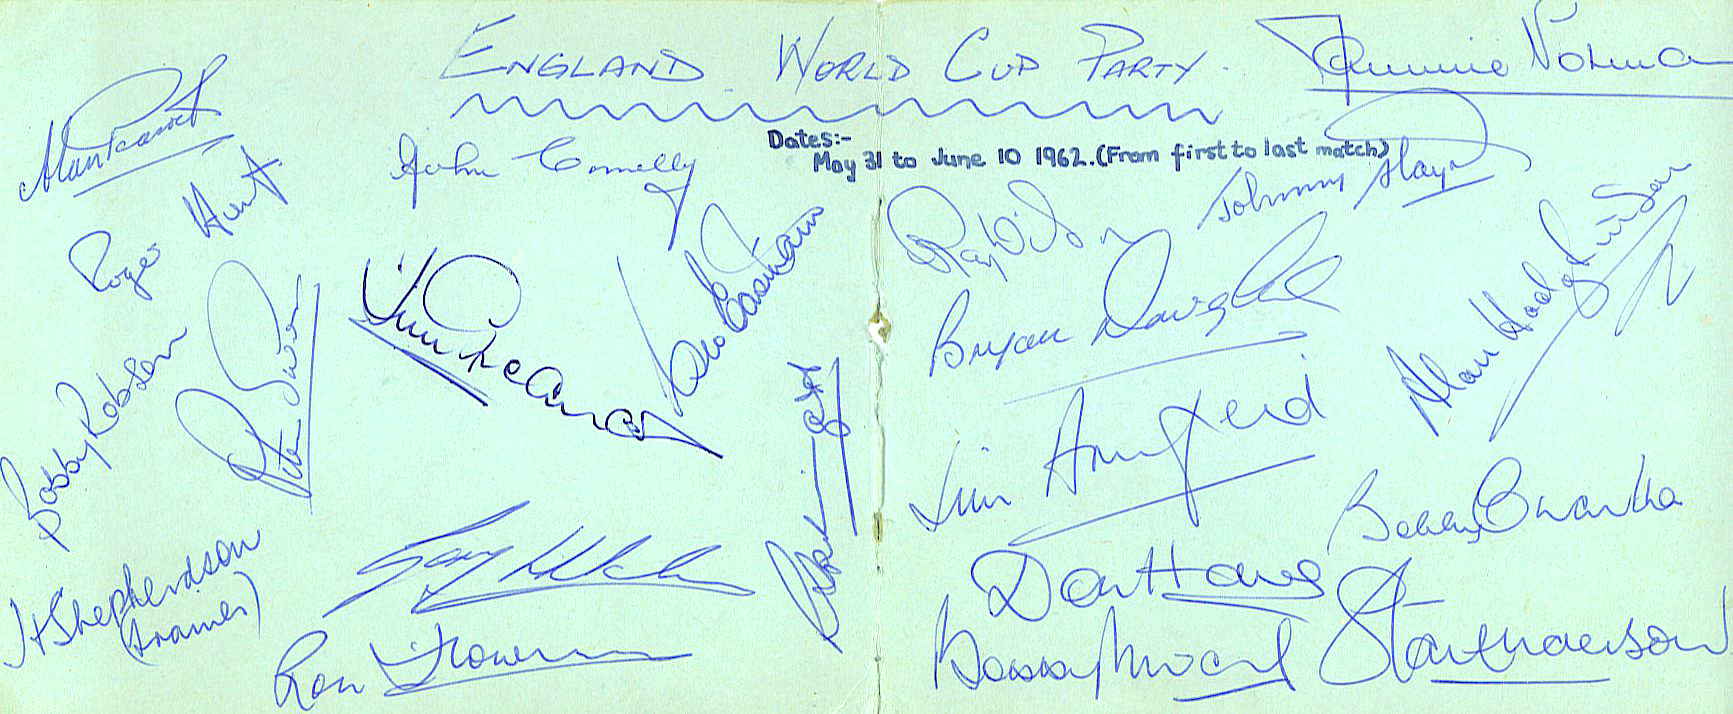 ENGLAND WORLD CUP PARTY.
Maurice Norman
Dates:-
May 31 to June 10 1962. (From first to last match)
Alan Peacock
John Connelly
Johnny Haynes
Roger Hunt
Ray Wilson
Alan Hodgkinson
Peter Swan
Jimmy Greaves
George Eastham
Bryan Douglas
Bobby Robson
Jim Armfield
Gerry Hitchens
Bobby Charlton
H Shepherdson
(trainer)
Don Howe
Ron Flowers
Bobby Moore
Stan Anderson